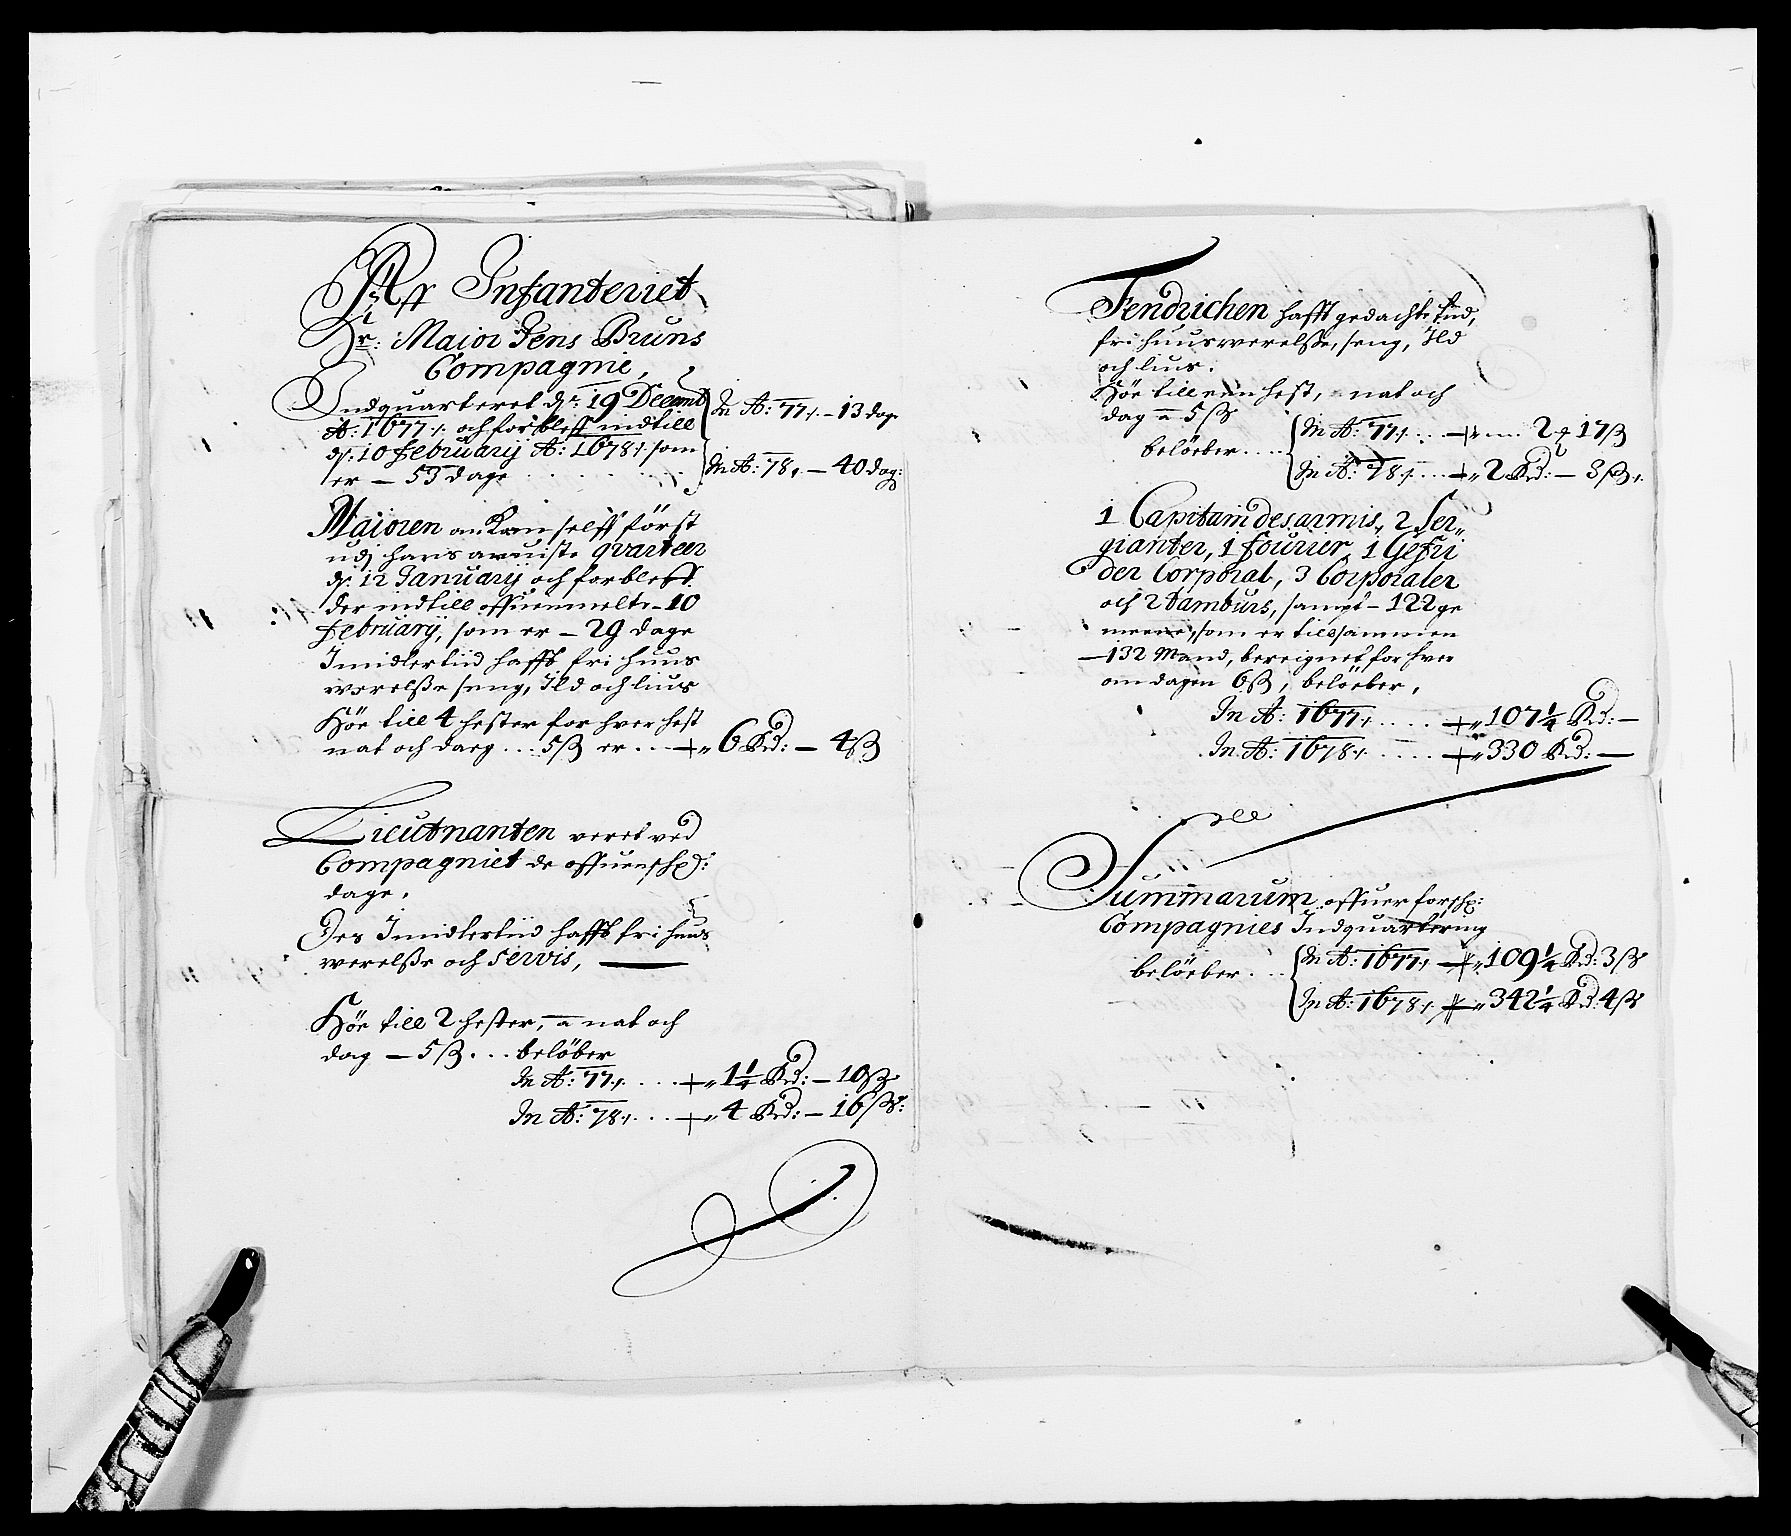 Aff Infanteriet
Hr: Maior Jens Bruns
Compagnie,
Indquarteret dn: 19 Decemb
A: 1677 /: och forbleff indtill
dn: 10 February A: 1678 /: som
er – 53 dage
In A: 77 /: – 13 dage
In A: 78 /: – 40 dag:
Maioren ankom selff först
udj hans anuiste qvarteer
dn: 12 January och forbleff
der indtill offuenmelte – 10
February, som er – 29 dage
Imidlertiid hafft fri huus
werelsse seng, Ild och liuus
Höe till 4 hester for hver hest
nat och dag ... 5 ß er ... 6 Rd: – 4 ß
Lieutnanten veret ved
Compagniet de offuenschr:
dage.
Des Imidlertiid hafft fri huus
werelsse och Servis,
Höe till 2 hester, a nat och
dag – 5 ß ... belöber
In A: 77 /: .... 1¼ Rd: – 10 ß
In A: 78 /: ... 4 Rd: – 16 ß:
Fendrichen hafft gedachte tiid,
fri huuswerelsse, seng, Ild
och liuus.
Höe till een hest, a nat och
dag a 5 ß
belöeber ....
In A: 77 /: .... 2 17 ß
In A: 78 /: .... 2 Rd: – 3 ß
1 Capitain desarmis, 2 Ser„
gianter, 1 Fourier, 1 Gefri
der Corporal, 3 Corporaler
och 2 Tamburs, sampt – 122 ge
meene, som er tillsammen
– 132 Mand, bereignet for hver
om dagen 6 ß, belöeber,
In A: 1677 /: .... 107¼ Rd: –
In A: 1678 /: .... 330 Rd: –
Summarum offuer forschr:
Compagnies Indquartering
belöeber ...
In A: 1677 /: 109¼ Rd: 3 ß
In A: 1678 /: 342¼ Rd: 4 ß